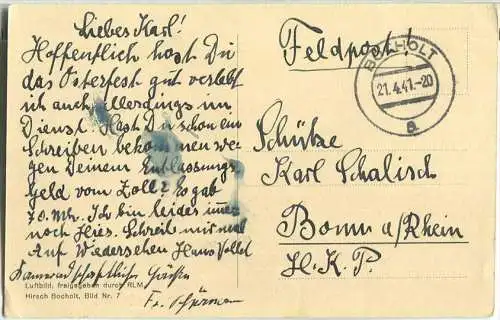 Lieber Karl!
Hoffentlich hast Du
das Osterfest gut verlebt
ich auch allerdings im
Dienst. Hast Du schon ein
Schreiben bekommen we-
gen Deinem Entlassungs
geld vom Zoll? Es gab
70 Mk. Ich bin leider immer
noch hier. Schreib mir mal
Auf Wiedersehen Hans
Kameradschaftliche Grüße
Fr.
Luftbild, freigegeben durch RLM
Hirsch Bocholt, Bild Nr. 7
Feldpost!
BOCHOLT
21.4.41.-20
a
Schütze
Karl Schalisch
Bonn a/Rhein
H.K.P.